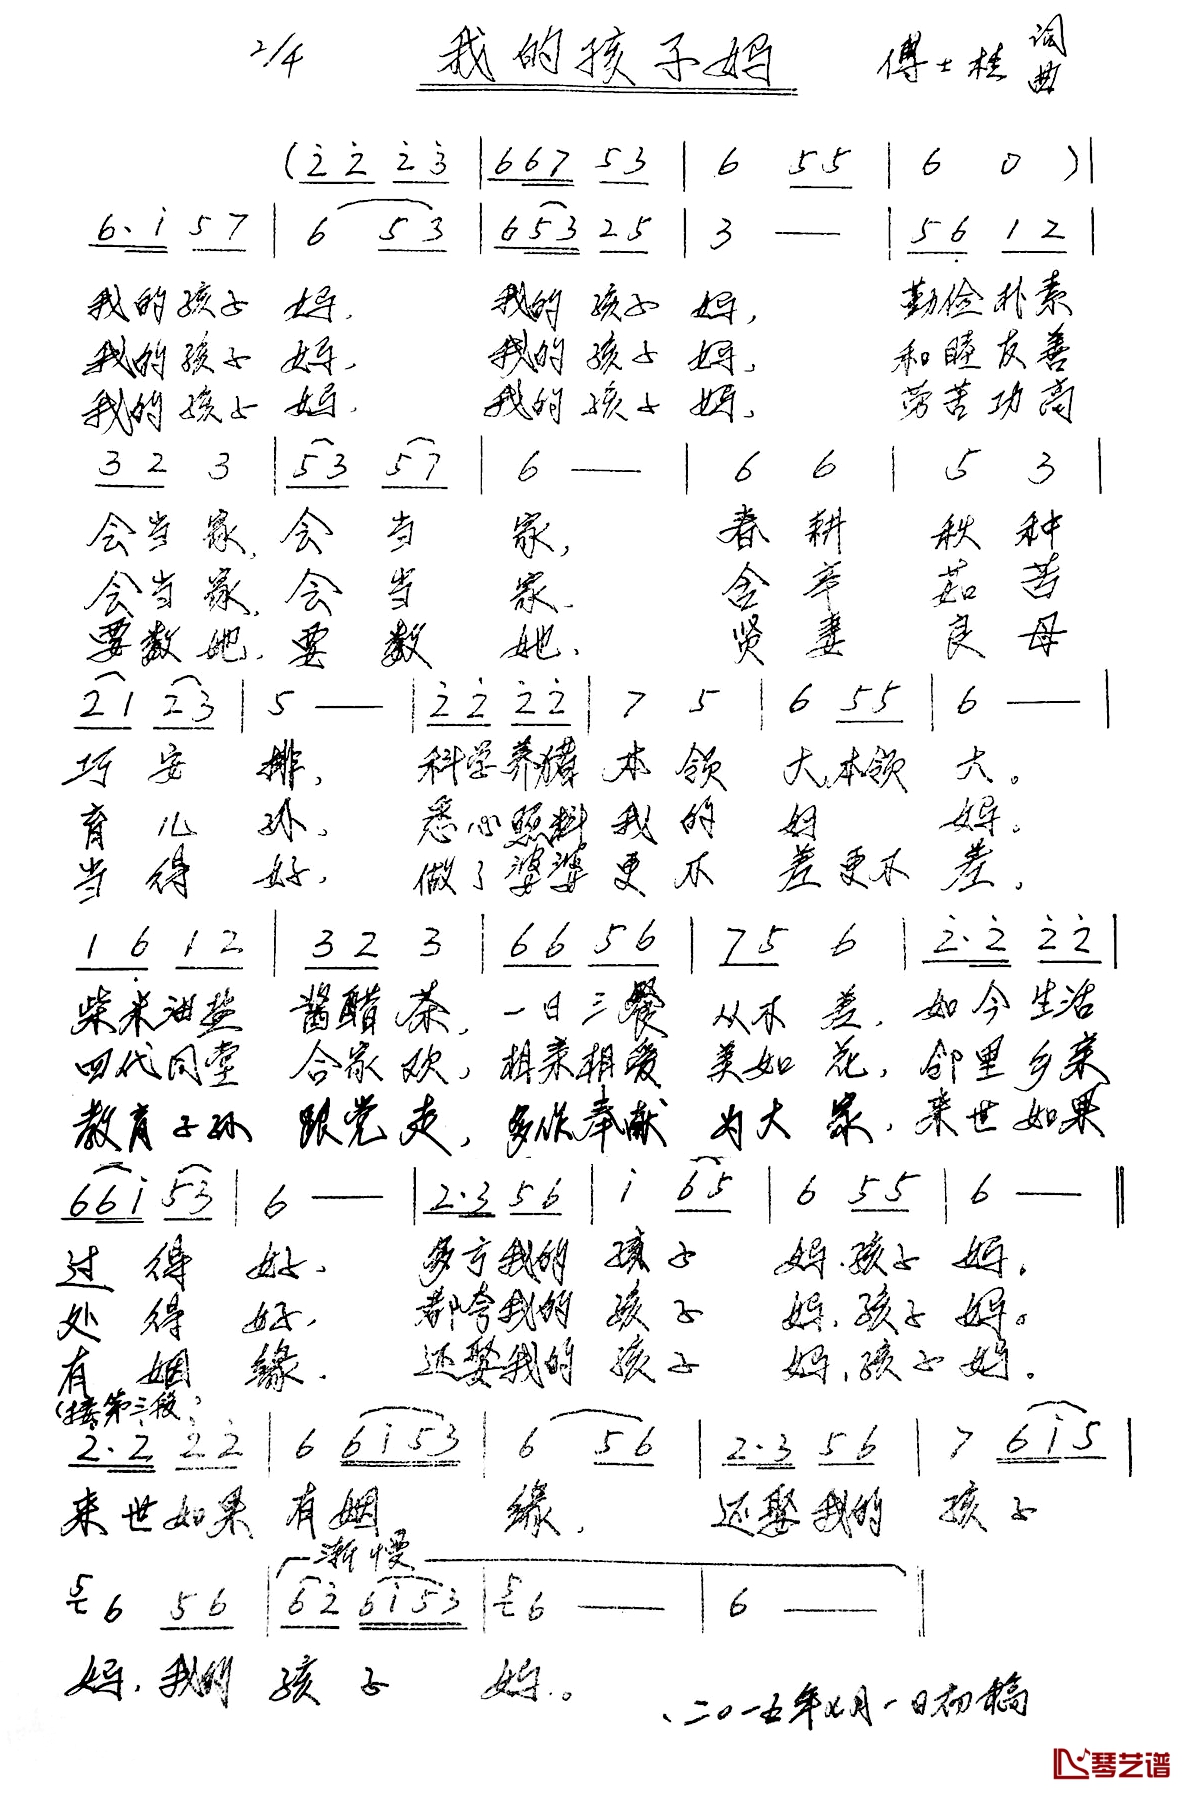 2/4 我的孩子妈 傅士桂 词曲
(2̇ 2̇ 2̇ 3̇ | 6 6 7 5 3 | 6 5 5 | 6 0 ) |
6· i 5 7 | 6 5 3 | 6 5 3 2 5 | 3 — | 5 6̣ 1 2 |
我的孩子 妈, 我的孩子妈, 勤俭朴素
我的孩子 妈, 我的孩子妈, 和睦友善
我的孩子 妈, 我的孩子妈, 劳苦功高
3 2 3 | 5 3 5 7 | 6 — | 6 6 | 5 3 |
会当家,会当家, 春耕秋种
会当家,会当家, 含辛茹苦
要数她,要数她, 贤妻良母
2 1 2 3 | 5 — | 2̇ 2̇ 2̇ 2̇ | 7 5 | 6 5 5 | 6 — |
巧安排, 科学养猪本领大,本领大。
育儿孙, 悉心照料我的妈妈。
当得好, 做了婆婆更不差更不差,
1 6̣ 1 2 | 3 2 3 | 6 6 5 6 | 7 5 6 | 2̇· 2̇ 2̇ 2̇ |
柴米油盐 酱醋茶,一日三餐 从不差,如今生活
四代同堂 合家欢,相亲相爱 美如花,邻里乡亲
教育子孙 跟党走,多作奉献 为大家,来世如果
6 6 i 5 3 | 6 — | 2· 3 5 6 | i 6 5 | 6 5 5 | 6 — ‖
过得好, 多亏我的孩子妈,孩子妈,
处得好, 都夸我的孩子妈,孩子妈。
有姻缘, 还娶我的孩子妈,孩子妈。
(接第三段)
2̇· 2̇ 2̇ 2̇ | 6 6 i 5 3 | 6 5 6 | 2· 3 5 6 | 7 6 i 5 |
来世如果有姻缘, 还娶我的孩子
渐慢
5 6 5 6 | 6 2̇ 6 i 5 3 | 5 6 — | 6 — ‖
妈,我的孩子妈。
二〇一五年七月一日初稿
琴艺谱